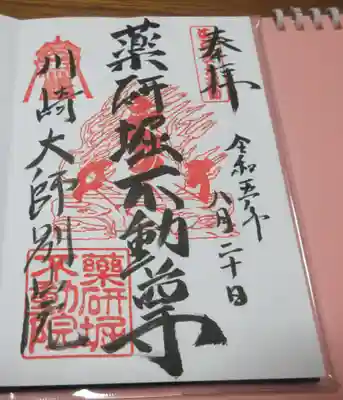 奉拝
令和五年
八月二十日
薬研堀不動尊
川崎大師別院
薬研堀
不動院